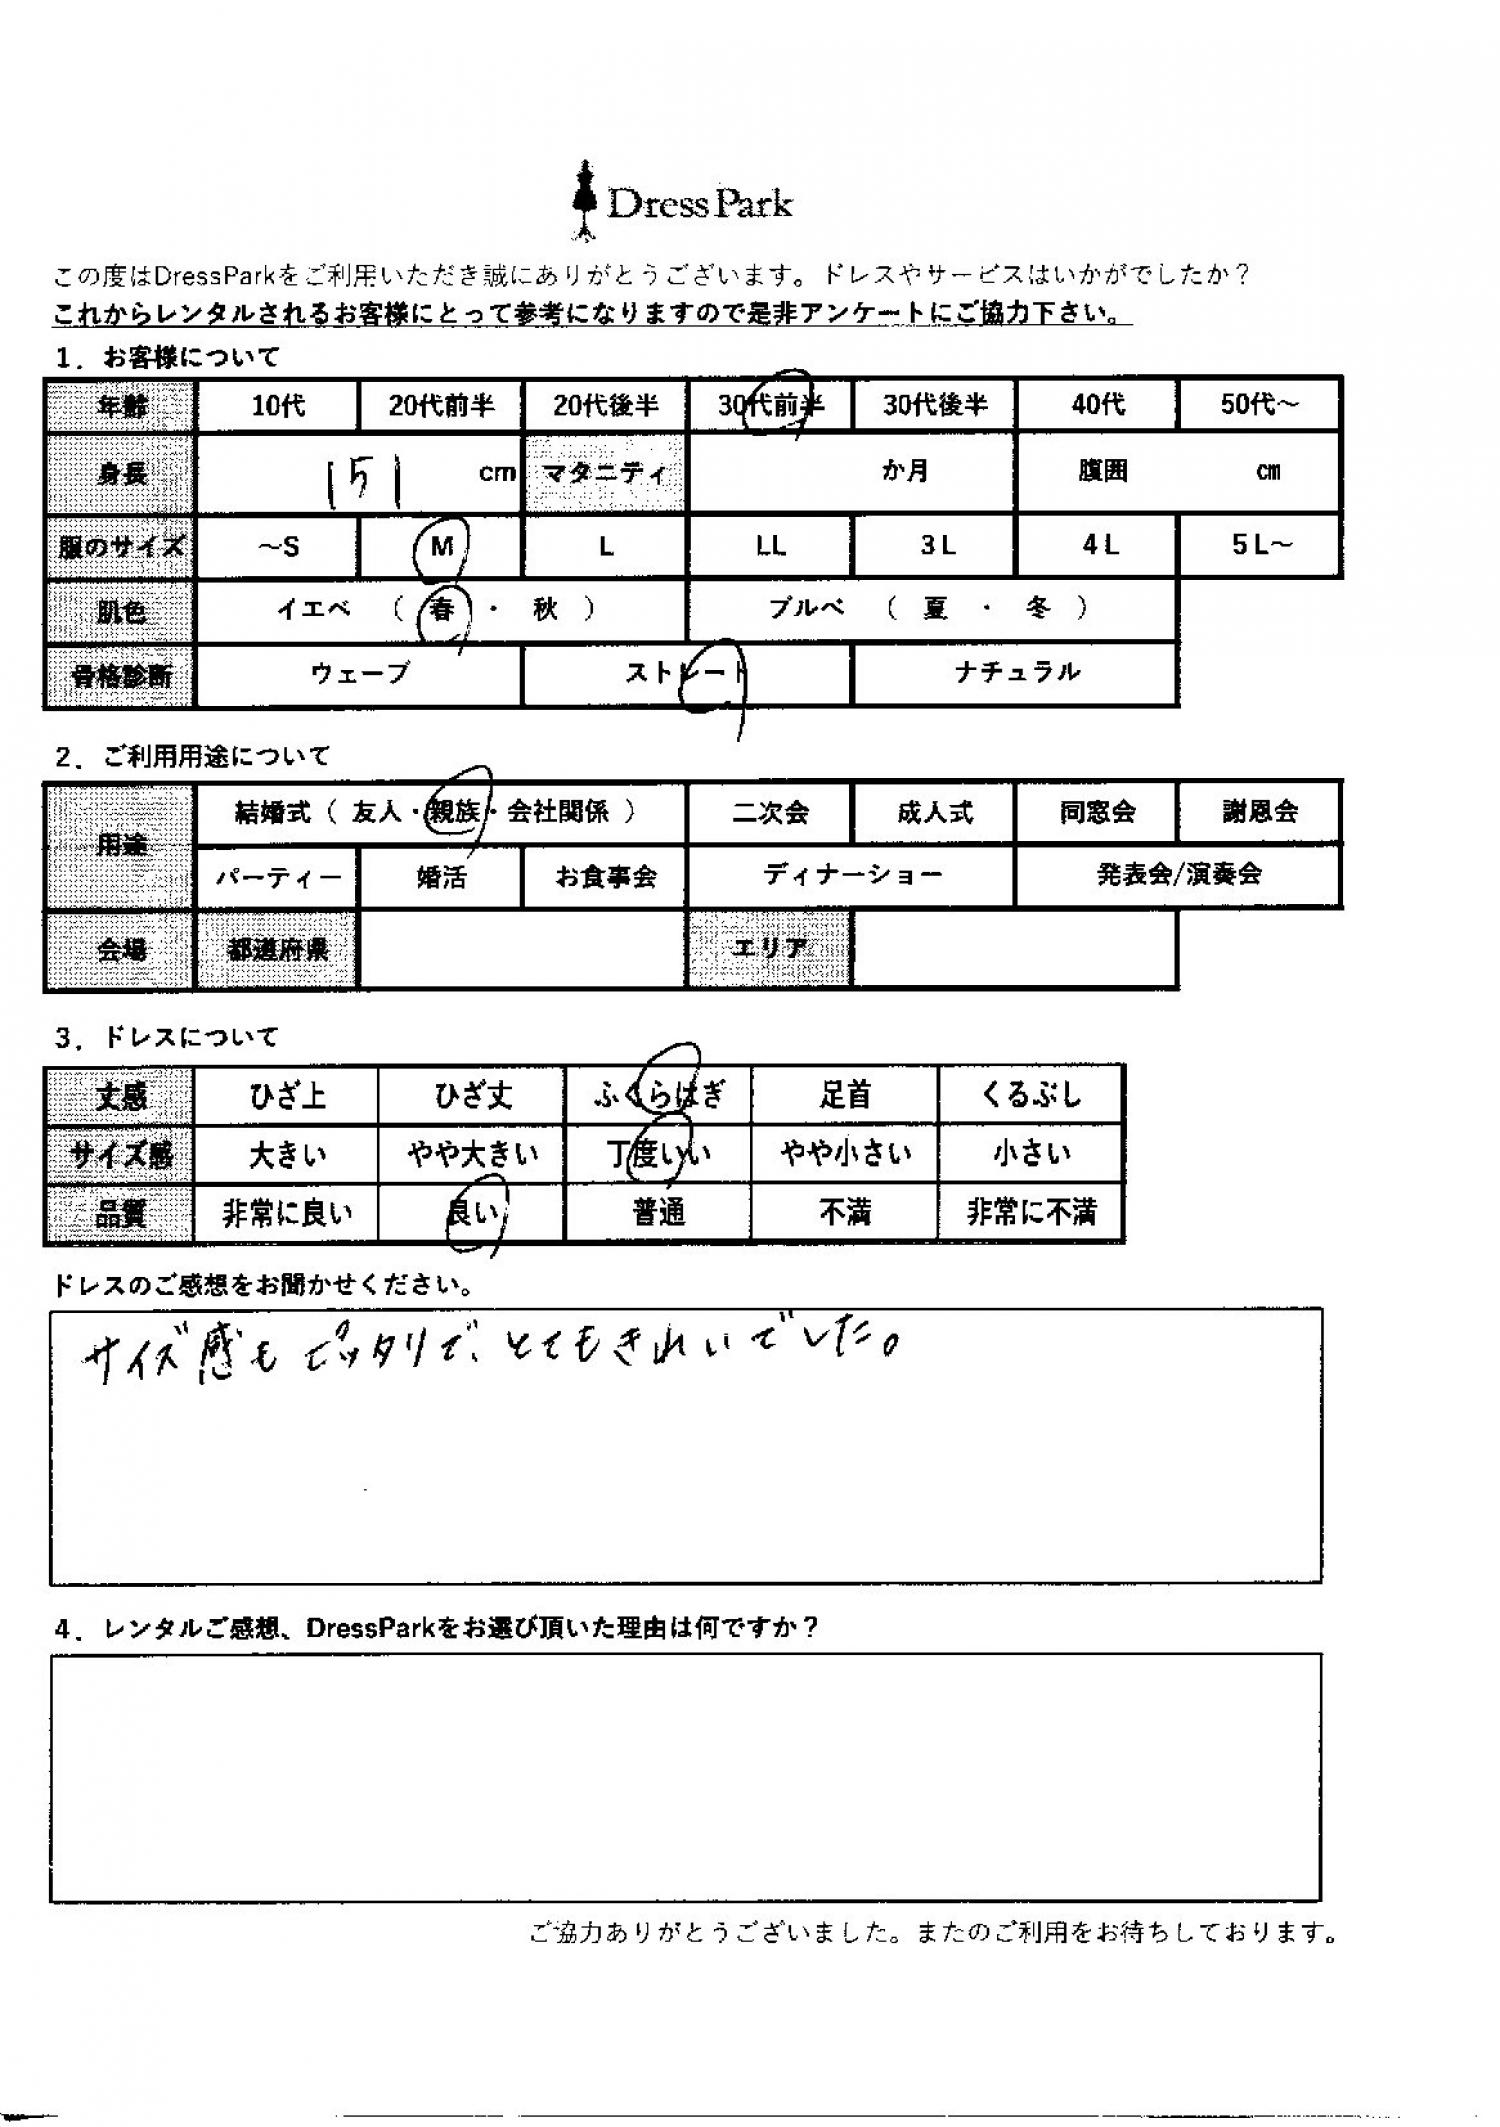 DressPark
この度はDressParkをご利用いただき誠にありがとうございます。ドレスやサービスはいかがでしたか？
これからレンタルされるお客様にとって参考になりますので是非アンケートにご協力下さい。
1．お客様について
年齢 10代 20代前半 20代後半 30代前半 30代後半 40代 50代～
身長 151 cm マタニティ か月 腹囲 cm
服のサイズ ～S M L LL 3L 4L 5L～
肌色 イエベ （ 春 ・ 秋 ） ブルベ （ 夏 ・ 冬 ）
骨格診断 ウェーブ ストレート ナチュラル
2．ご利用用途について
用途 結婚式（ 友人・親族・会社関係 ） 二次会 成人式 同窓会 謝恩会
パーティー 婚活 お食事会 ディナーショー 発表会/演奏会
会場 都道府県 エリア
3．ドレスについて
丈感 ひざ上 ひざ丈 ふくらはぎ 足首 くるぶし
サイズ感 大きい やや大きい 丁度いい やや小さい 小さい
品質 非常に良い 良い 普通 不満 非常に不満
ドレスのご感想をお聞かせください。
サイズ感もピッタリで、とてもきれいでした。
4．レンタルご感想、DressParkをお選び頂いた理由は何ですか？
ご協力ありがとうございました。またのご利用をお待ちしております。